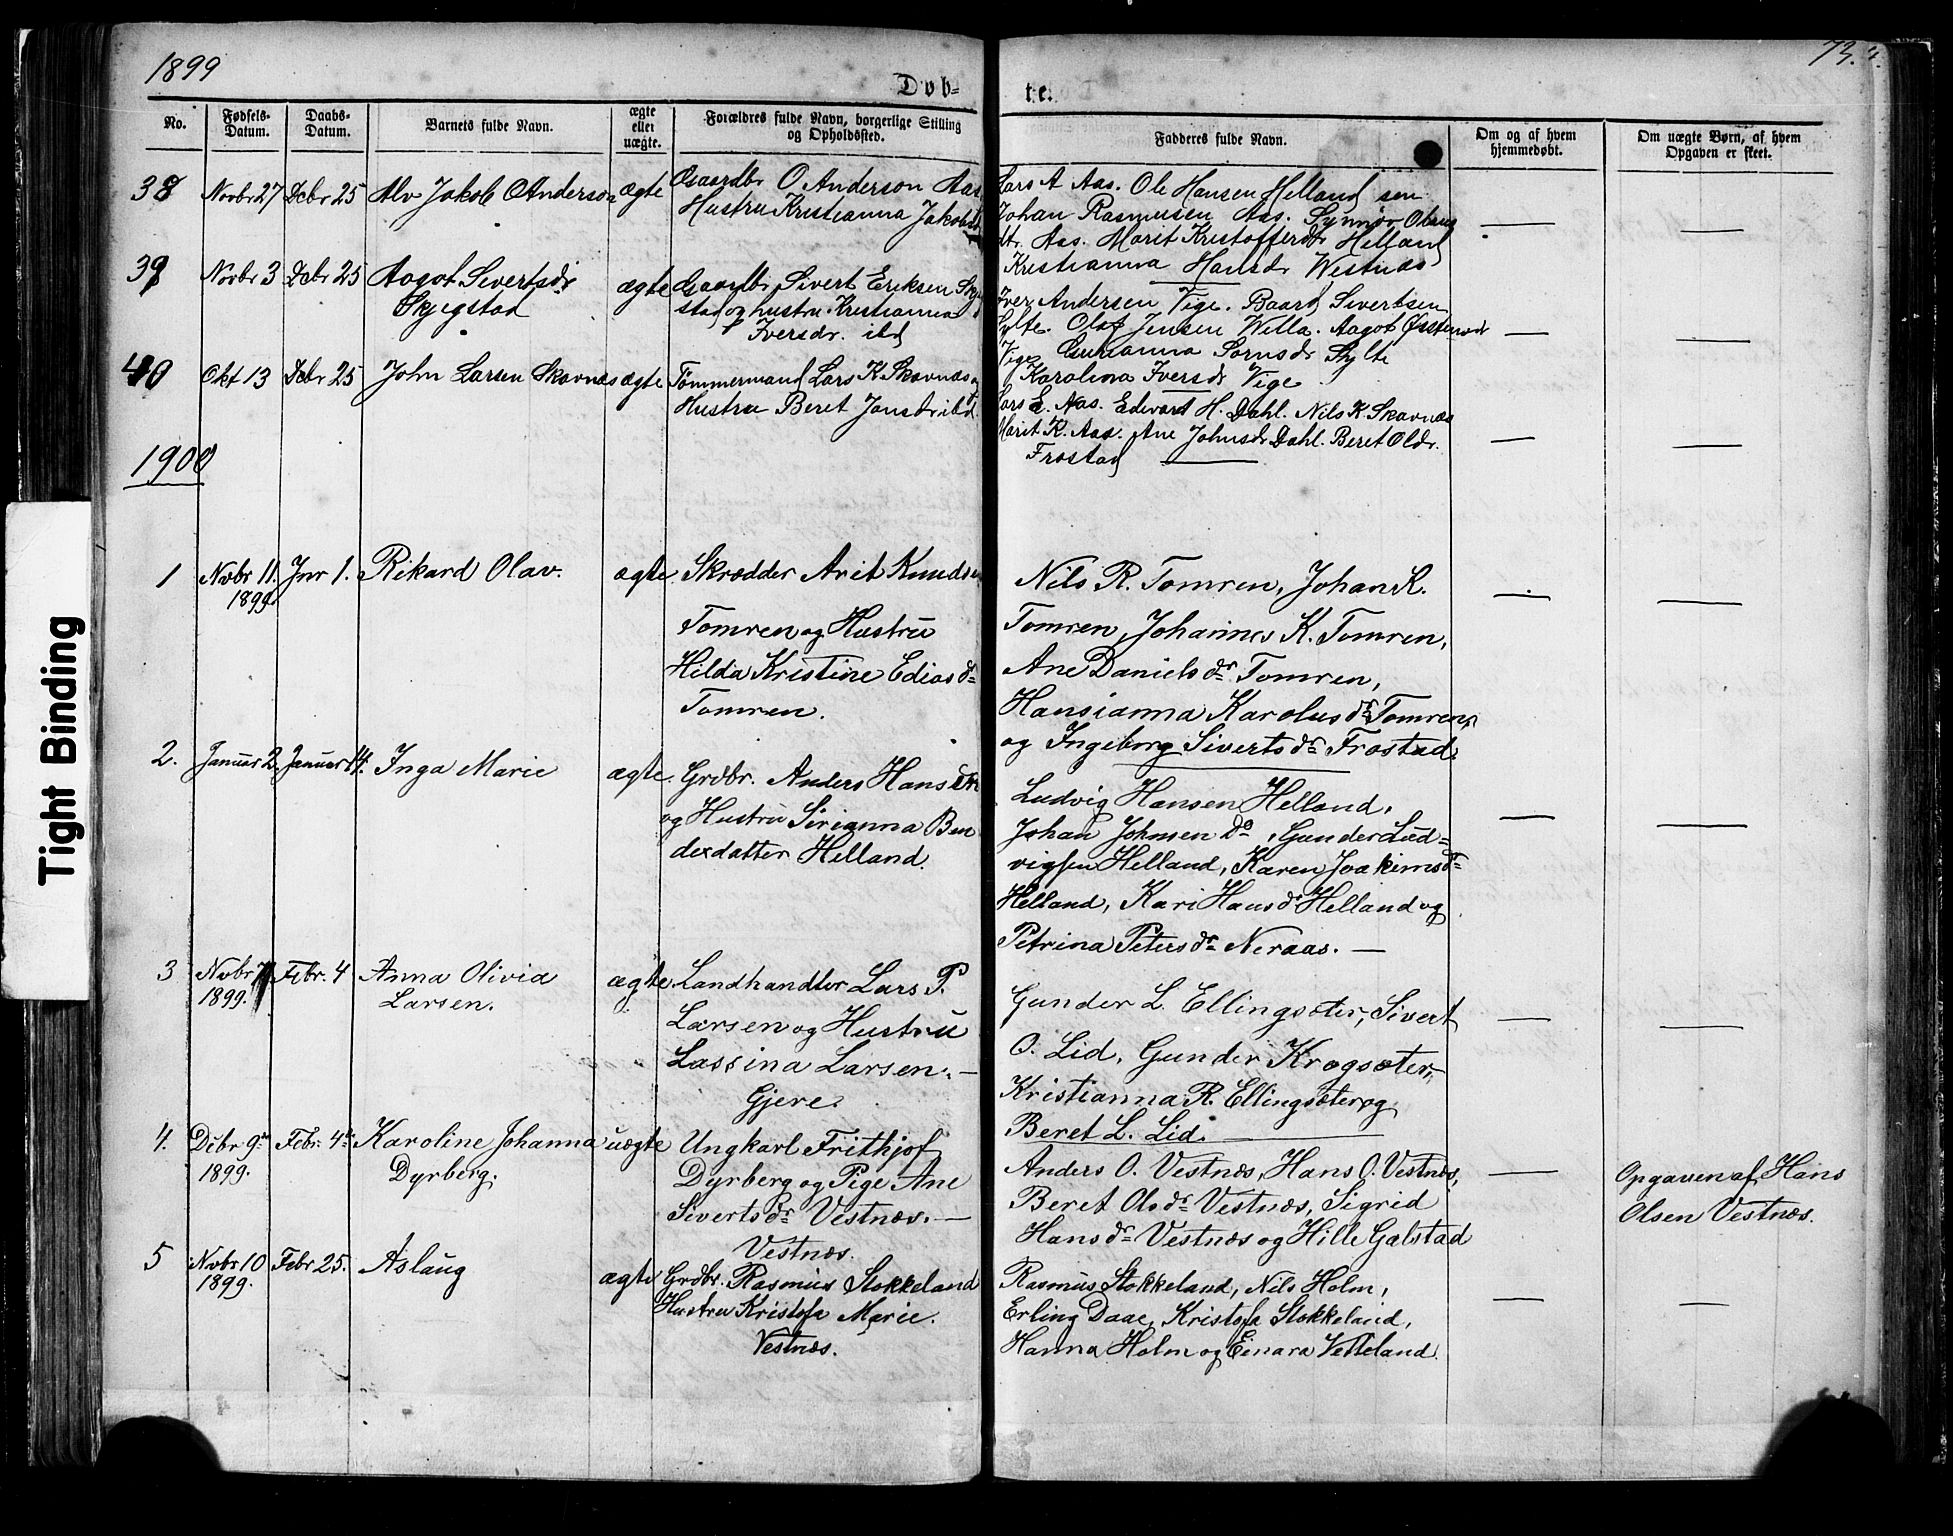 1899
73.
Døb-
te.
No.
Fødsels-
Datum.
Daabs-
Datum.
Barnets fulde Navn.
ægte
eller
uægte.
Forældres fulde Navn, borgerlige Stilling
og Opholdssted.
Fadderes fulde Navn.
Om og af hvem
hjemmedøbt.
Om uægte Børn, af hvem
Opgaven er skeet.
38 Novbr 27 Dcbr 25 Alv Jakob OAnderson ægte Gaardbr O Anderson Aas
Hustru Kristianna Jakobsdr
Lars A Aas. Ole Hansen Helland sen
Johan Rasmusen Aas. Synnøv Olsens
dtr. Aas. Marit Kristofferdtr Helland
Kristianna Hansdr Westnæs
39 Novbr 3 Dcbr 25 Aagot Sivertsdr
Skjegstad
ægte Gaardbr Sivert Eriksen Skj
stad og hustru Kristianna
Iversdr. ibd
Iver Andersen Vige. Baard Sivertsen
Sylte. Olaf Jensen Willa. Aagot Østensdr
Vige Gurianna Sørnsdr Sylte
Karolina Iversdr Vige
40 Okt 13 Dcbr 25 John Larsen Skavnæs ægte Tømmermand Lars K Skavnæs og
Hustru Beret Jonsdr ibd.
Lars E. Aas. Edevart H. Dahl. Nils K. Skavnæs
Marit K. Aas. Ane Johnsdr Dahl. Beret Oldr.
Frostad
1900
1 Novbr 11. Jnr 1. Rikard Olav. ægte
1899
Skrædder Arit Knudsen
Tomren og Hustru
Hilda Kristine Edias dr
Tomren.
Nils R. Tomren, Johan K.
Tomren, Johannes K. Tomren,
Ane Daniels dr Tomren,
Hansianna Karolus dr Tomren,
og Ingeborg Siverts dr Frostad.
2. Januar 2. Januar 14. Inga Marie ægte. Grdbr. Anders Hansen
og Hustru Sirianna Ben
derdatter Helland.
Ludvig Hansen Helland,
Johan Johnsen do, Gunder Lud-
vigsen Helland, Karen Joakims dr
Helland, Kari Hans dr Helland og
Petrina Peters dr Neraas.
3 Novbr Febr. 4 Anna Olivia
1899. Larsen.
ægte Landhandler Lars P.
Larsen og Hustru
Lassina Larsen.
Gjere.
Gunder L. Ellingsæter, Sivert
O. Lid, Gunder Krogsæter,
Kristianna R. Ellingsæter og
Beret L. Lid.
4. Dcbr 9. Febr. 4 Karoline Johanna uægte
1899. Dyrberg.
Ungkarl Frithjof
Dyrberg og Pige Ane
Siverts dr Vestnæs.
Vestnæs.
Anders O. Vestnæs, Hans O. Vestnæs,
Beret Ols dr Vestnæs, Sigrid
Hans dr Vestnæs og Hille Galstad
Opgaven af Hans
Olsen Vestnæs.
5 Novbr 10 Febr 25. Aslaug ægte
1899.
Grdbr. Rasmus Stokkeland
Hustru Kristofa Marie.
Vestnæs.
Rasmus Stokkeland, Nils Holm,
Erling Daae, Kristofa Stokkeland,
Hanna Holm og Einara Vetteland.
Tight Binding